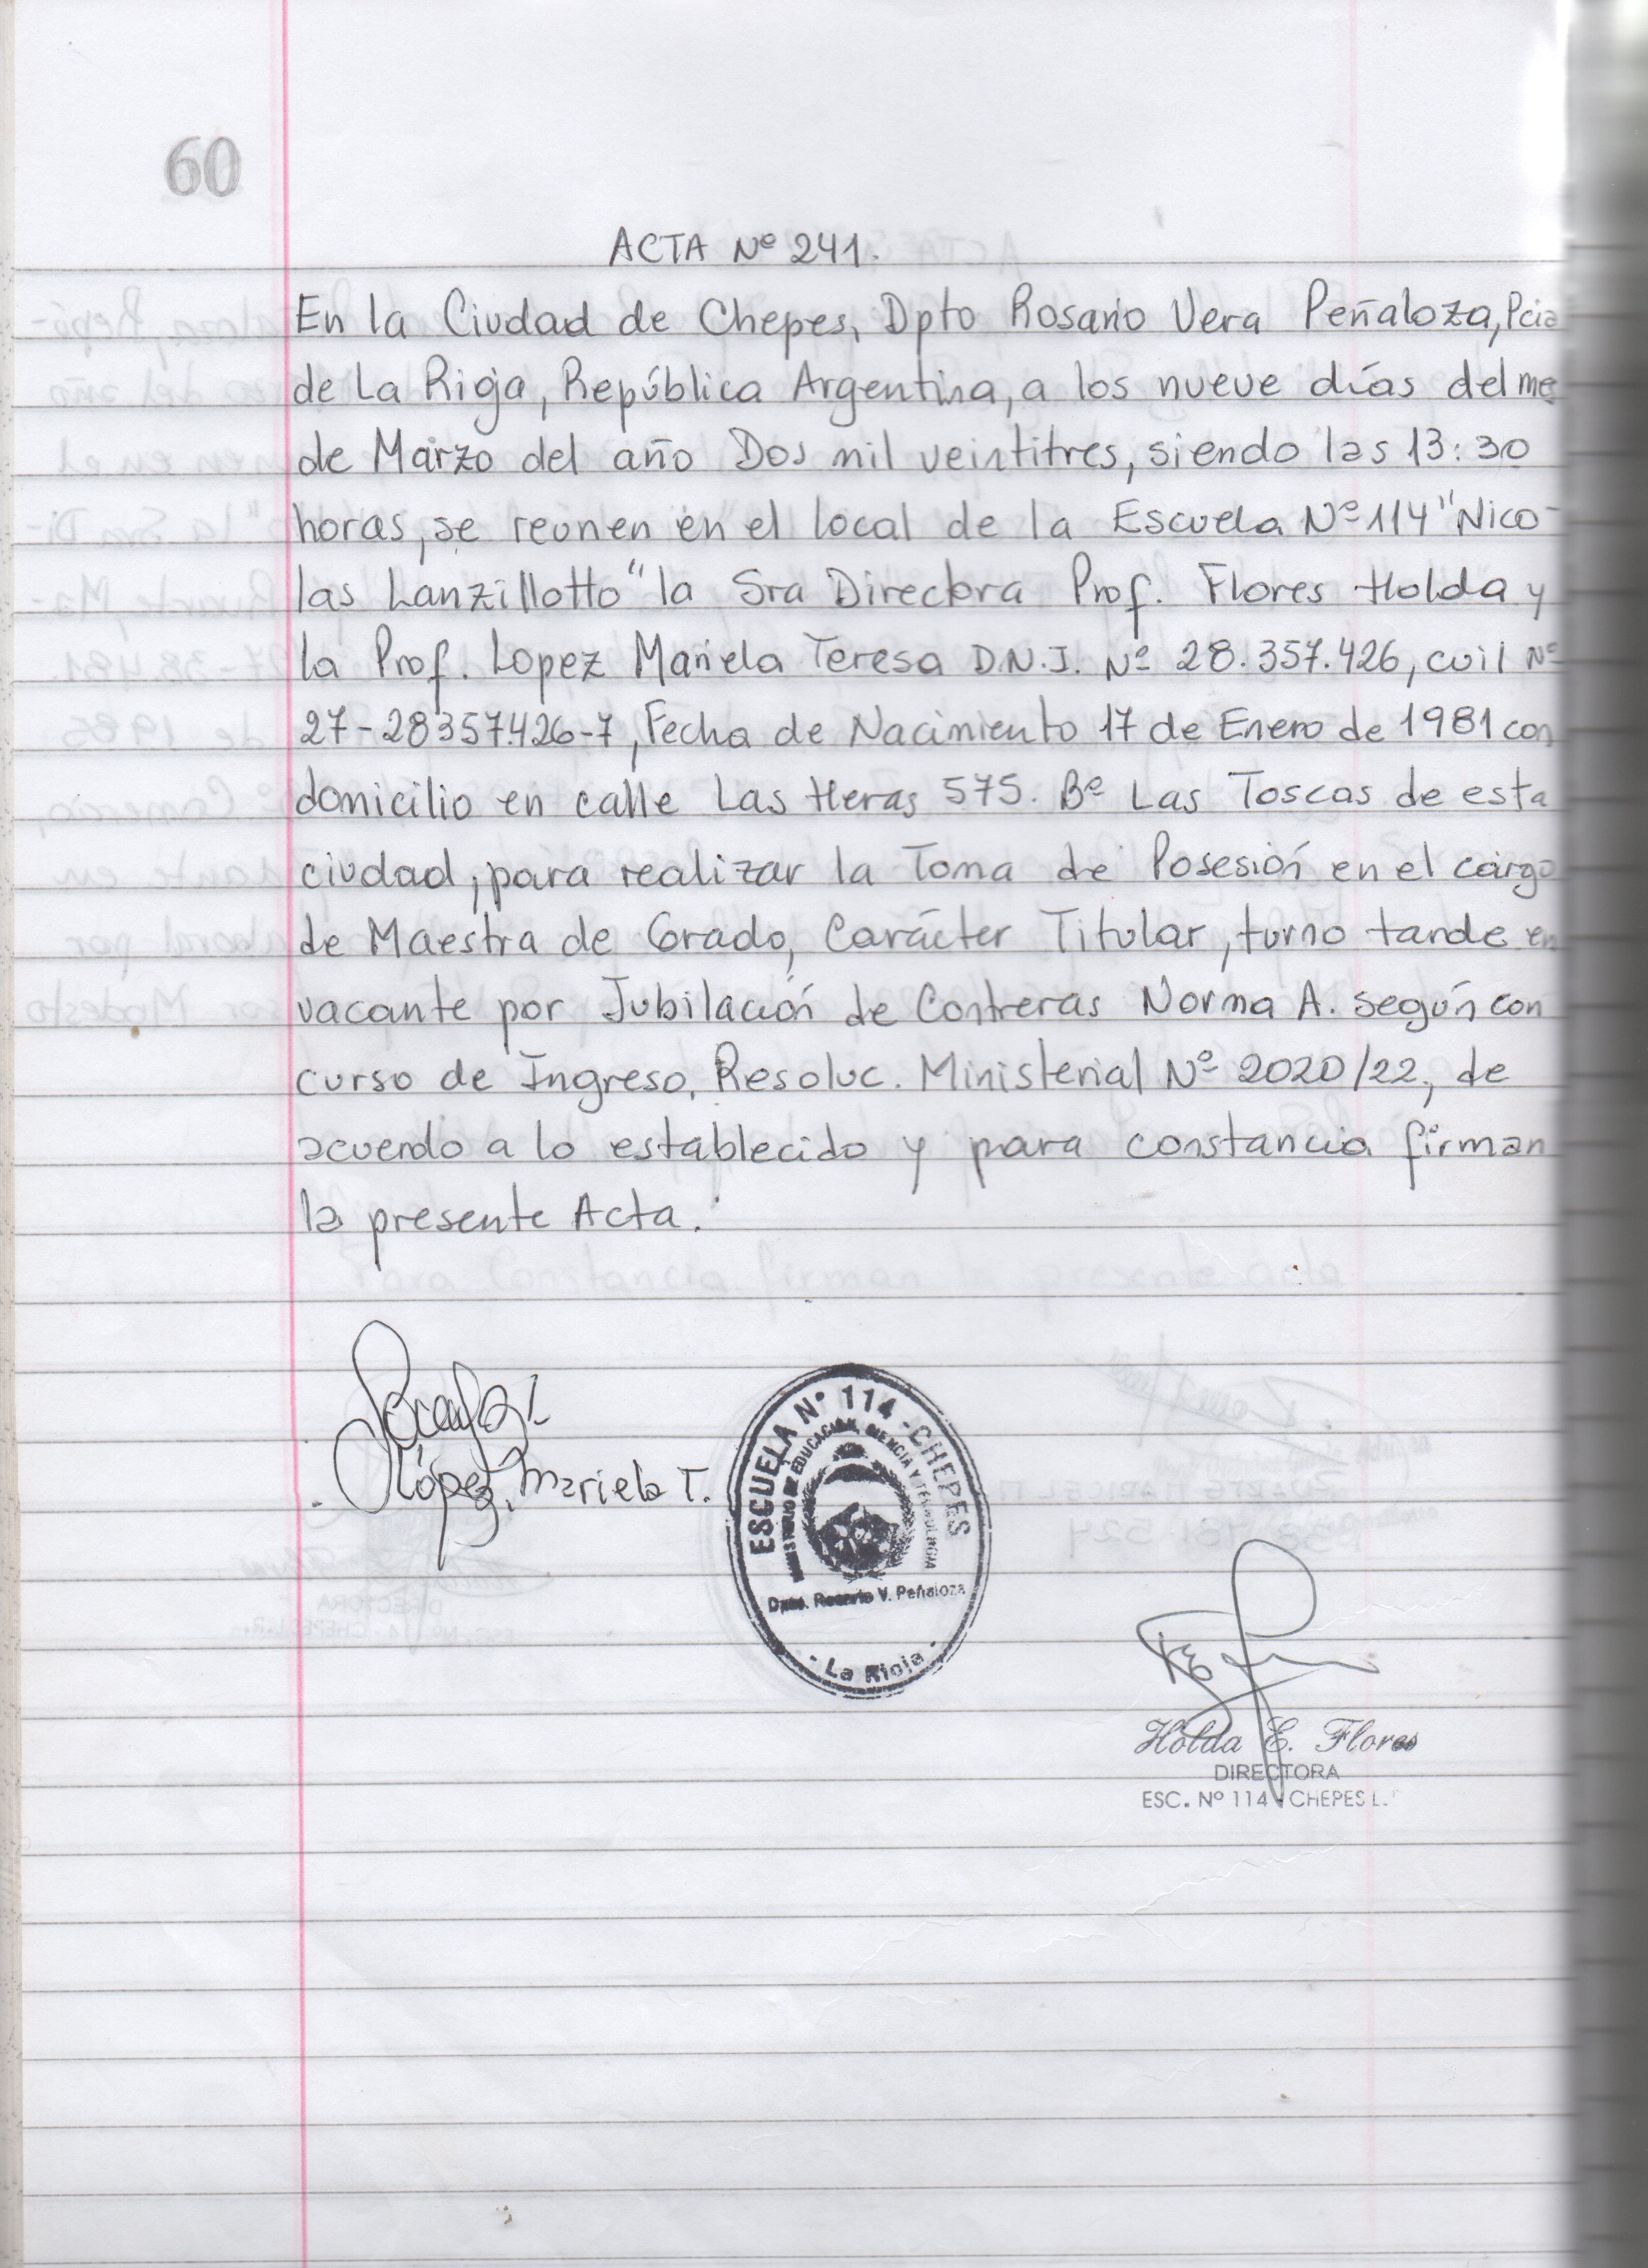 60
ACTA Nº 241.
En la Ciudad de Chepes, Dpto Rosario Vera Peñaloza, Pcia
de La Rioja, República Argentina, a los nueve días del me
de Marzo del año Dos mil veintitres, siendo las 13:30
horas, se reunen en el local de la Escuela Nº 114 "Nico-
las Lanzillotto" la Sra Directora Prof. Flores Holda y
la Prof. Lopez Mariela Teresa D.N.I. Nº 28.357.426, cuil Nº
27-28357.426-7, Fecha de Nacimiento 17 de Enero de 1981 con
domicilio en calle Las Heras 575. Bº Las Toscas de esta
ciudad, para realizar la Toma de Posesión en el cargo
de Maestra de Grado, Carácter Titular, turno tarde en
vacante por Jubilación de Contreras Norma A. según con
curso de Ingreso, Resoluc. Ministerial Nº 2020/22, de
acuerdo a lo establecido y para constancia firman
la presente Acta.
López, Mariela T.
ESCUELA Nº 114 - CHEPES
MINISTERIO DE EDUCACION, CIENCIA Y TECNOLOGIA
Dpto. Rosario V. Peñaloza
- La Rioja -
Holda E. Flores
DIRECTORA
ESC. Nº 114 - CHEPES L.